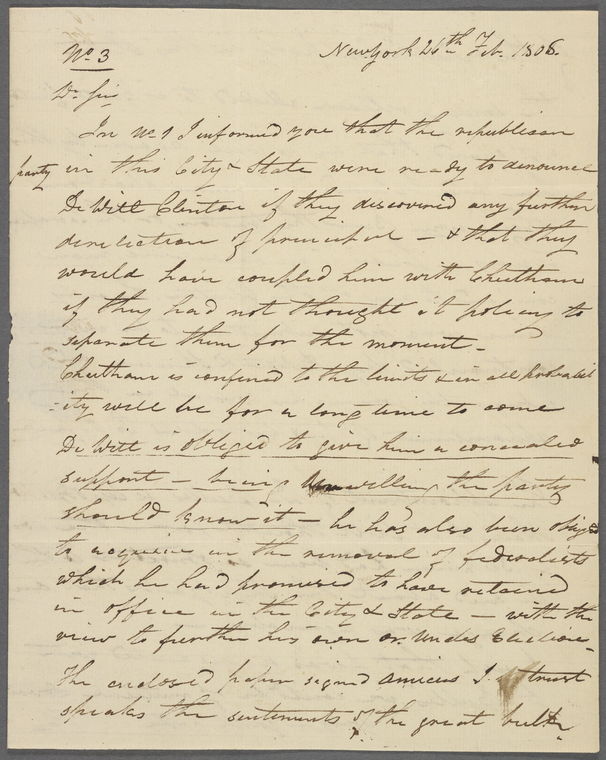 No. 3
New York 26th Feb. 1808.
Dr Sir
In No. 1 I informed you that the republican
party in this City & State were ready to denounce
De Witt Clinton if they discovered any further
dereliction of principal - & that they
would have coupled him with Cheetham
if they had not thought it policy to
separate them for the moment -
Cheetham is confined to the limits & in all probabil
-ity will be for a long time to come
De Witt is obliged to give him a concealed
support - being unwilling the party
should know it - he has also been obliged
to acquiese in the removal of federalists
which he had promised to have retained
in office in the City & State - with the
view to further his own or Uncles Election -
The enclosed paper signed Amicus I trust
speaks the sentiments of the great bulk